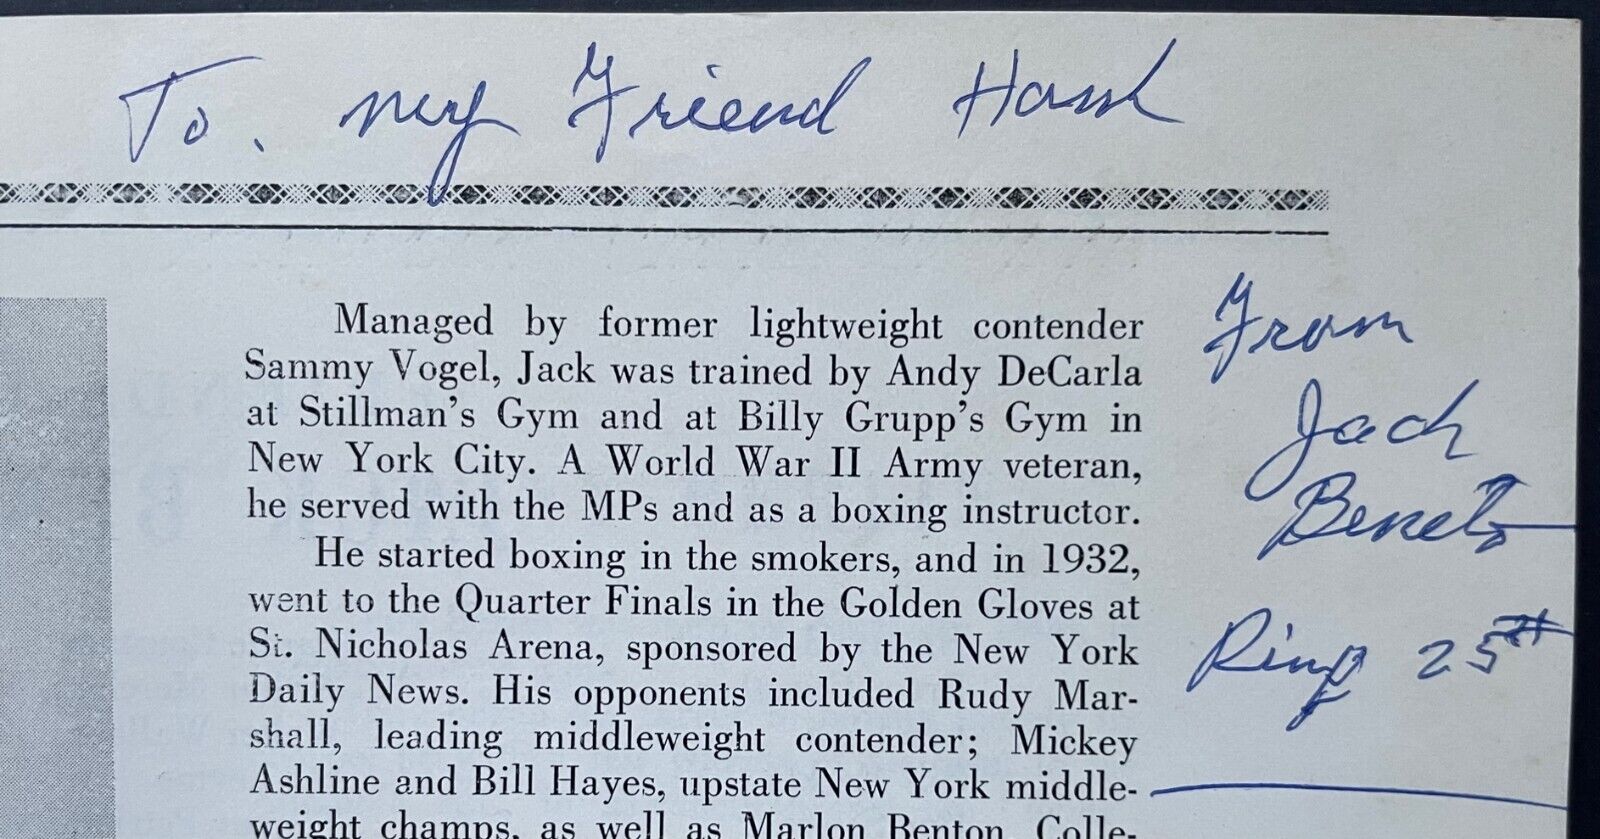 To. my Friend Hank
Managed by former lightweight contender
Sammy Vogel, Jack was trained by Andy DeCarla
at Stillman's Gym and at Billy Grupp's Gym in
New York City. A World War II Army veteran,
he served with the MPs and as a boxing instructor.
He started boxing in the smokers, and in 1932,
went to the Quarter Finals in the Golden Gloves at
St. Nicholas Arena, sponsored by the New York
Daily News. His opponents included Rudy Mar-
shall, leading middleweight contender; Mickey
Ashline and Bill Hayes, upstate New York middle-
weight champs, as well as Marlon Benton, Colle-
From
Jack
Ring 25